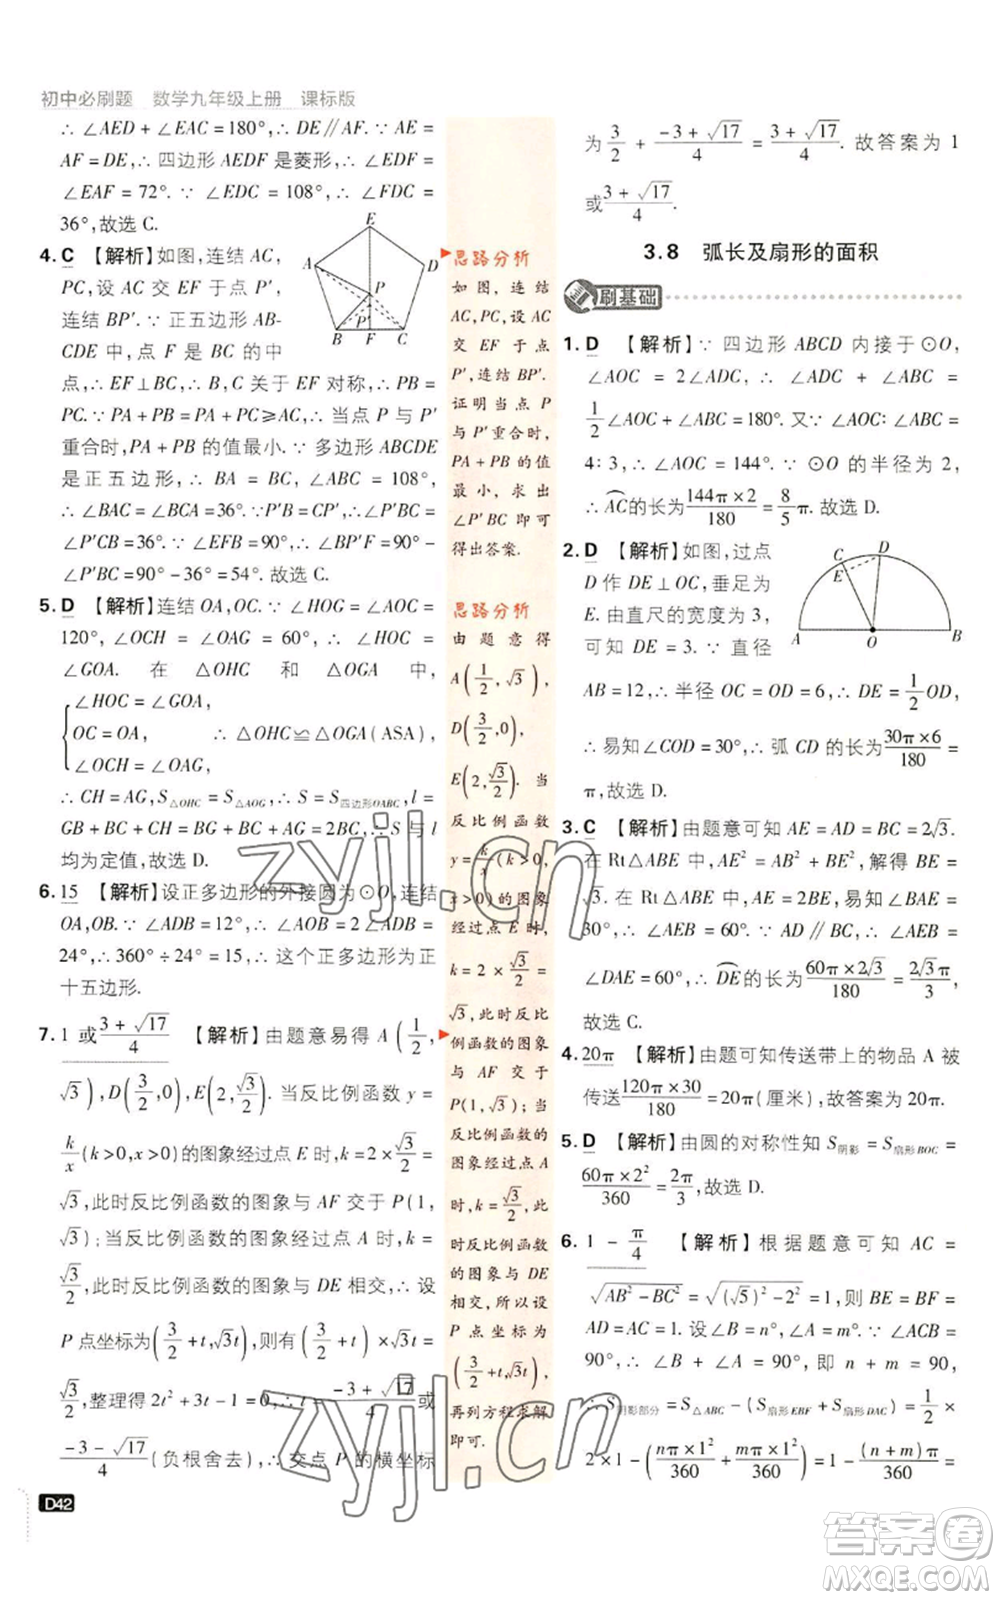 初中必刷题 数学九年级上册 课标版
∴ ∠AED + ∠EAC = 180°, ∴ DE∥AF. ∵ AE =
AF = DE, ∴ 四边形 AEDF 是菱形, ∴ ∠EDF =
∠EAF = 72°. ∵ ∠EDC = 108°, ∴ ∠FDC =
36°, 故选 C.
4. C 【解析】如图, 连结 AC,
PC, 设 AC 交 EF 于点 P',
连结 BP'. ∵ 正五边形 AB-
CDE 中, 点 F 是 BC 的中
点, ∴ EF⊥BC, ∴ B, C 关于 EF 对称, ∴ PB =
PC. ∵ PA + PB = PA + PC ≥ AC, ∴ 当点 P 与 P'
重合时, PA + PB 的值最小. ∵ 多边形 ABCDE
是正五边形, ∴ BA = BC, ∠ABC = 108°,
∴ ∠BAC = ∠BCA = 36°. ∵ P'B = CP', ∴ ∠P'BC =
∠P'CB = 36°. ∵ ∠EFB = 90°, ∴ ∠BP'F = 90° -
∠P'BC = 90° - 36° = 54°. 故选 C.
E
A
D
P
P'
B F C
5. D 【解析】连结 OA, OC. ∵ ∠HOG = ∠AOC =
120°, ∠OCH = ∠OAG = 60°, ∴ ∠HOC =
∠GOA. 在 △OHC 和 △OGA 中,
{∠HOC = ∠GOA,
OC = OA, ∴ △OHC≌△OGA(ASA),
∠OCH = ∠OAG,
∴ CH = AG, S△OHC = S△AOG, ∴ S = S四边形OABC, l =
GB + BC + CH = BG + BC + AG = 2BC, ∴ S 与 l
均为定值, 故选 D.
6. 15 【解析】设正多边形的外接圆为⊙O, 连结
OA, OB. ∵ ∠ADB = 12°, ∴ ∠AOB = 2∠ADB =
24°, ∴ 360° ÷ 24° = 15, ∴ 这个正多边形为正
十五边形.
7. 1 或 (3 + √17)/4 【解析】由题意易得 A(1/2,
√3), D(3/2, 0), E(2, √3/2). 当反比例函数 y =
k/x (k > 0, x > 0) 的图象经过点 E 时, k = 2 × √3/2 =
√3, 此时反比例函数的图象与 AF 交于 P(1,
√3); 当反比例函数的图象经过点 A 时, k =
√3/2, 此时反比例函数的图象与 DE 相交, ∴ 设
P 点坐标为(3/2 + t, √3t), 则有(3/2 + t) × √3t =
√3/2, 整理得 2t² + 3t - 1 = 0, ∴ t = (-3 + √17)/4 或
(-3 - √17)/4 (负根舍去), ∴ 交点 P 的横坐标
D42
思路分析
如图, 连结
AC, PC, 设 AC
交 EF 于点
P', 连结 BP'.
证明当点 P
与 P' 重合时,
PA + PB 的值
最小, 求出
∠P'BC 即可
得出答案.
思路分析
由题意得
A(1/2, √3),
D(3/2, 0),
E(2, √3/2). 当
反比例函数
y = k/x (k > 0,
x > 0) 的图象
经过点 E 时,
k = 2 × √3/2 =
√3, 此时反比
例函数的图象
与 AF 交于
P(1, √3); 当
反比例函数的
图象经过点 A
时, k = √3/2, 此
时反比例函数
的图象与 DE
相交, 所以设
P 点坐标为
(3/2 + t, √3t),
再列方程求解
即可.
为 3/2 + (-3 + √17)/4 = (3 + √17)/4. 故答案为 1
或 (3 + √17)/4.
3.8 弧长及扇形的面积
刷基础
1. D 【解析】∵ 四边形 ABCD 内接于⊙O,
∠AOC = 2∠ADC, ∴ ∠ADC + ∠ABC =
1/2∠AOC + ∠ABC = 180°. 又∵ ∠AOC : ∠ABC =
4:3, ∴ ∠AOC = 144°. ∵ ⊙O 的半径为 2,
∴ AC的长为 (144π × 2)/180 = 8/5 π. 故选 D.
2. D 【解析】如图, 过点
D 作 DE⊥OC, 垂足为
E. 由直尺的宽度为 3,
可知 DE = 3. ∵ 直径
AB = 12, ∴ 半径 OC = OD = 6, ∴ DE = 1/2 OD,
∴ 易知∠COD = 30°, ∴ 弧 CD 的长为 (30π × 6)/180 =
π. 故选 D.
C D
E
A O B
3. C 【解析】由题意可知 AE = AD = BC = 2√3.
在 Rt△ABE 中, AE² = AB² + BE², 解得 BE =
√3. 在 Rt△ABE 中, AE = 2BE, ∴ ∠BAE =
30°, ∴ ∠AEB = 60°. ∵ AD∥BC, ∴
∠DAE = 60°, ∴ DE的长为 (60π × 2√3)/180 = (2√3)/3 π,
故选 C.
4. 20π 【解析】由题可知传送带上的物品 A 被
传送 (120π × 30)/180 = 20π(厘米), 故答案为 20π.
5. D 【解析】由圆的对称性知 S阴影 = S扇形BOC =
(60π × 2²)/360 = 2π/3, 故选 D.
6. 1 - π/4 【解析】根据题意可知 AC =
√(AB² - BC²) = √((√5)² - 2²) = 1, 则 BE = BF =
AD = AC = 1. 设∠B = n°, ∠A = m°. ∵ ∠ACB =
90°, ∴ ∠B + ∠A = 90°, 即 n + m = 90,
∴ S阴影部分 = S△ABC - (S扇形EBF + S扇形DAC) = 1/2 ×
2 × 1 - (nπ × 1²/360 + mπ × 1²/360) = 1 - (n + m)π/360 =
zyjl.cn
zyjl.cn
答案圈
MXQE.COM